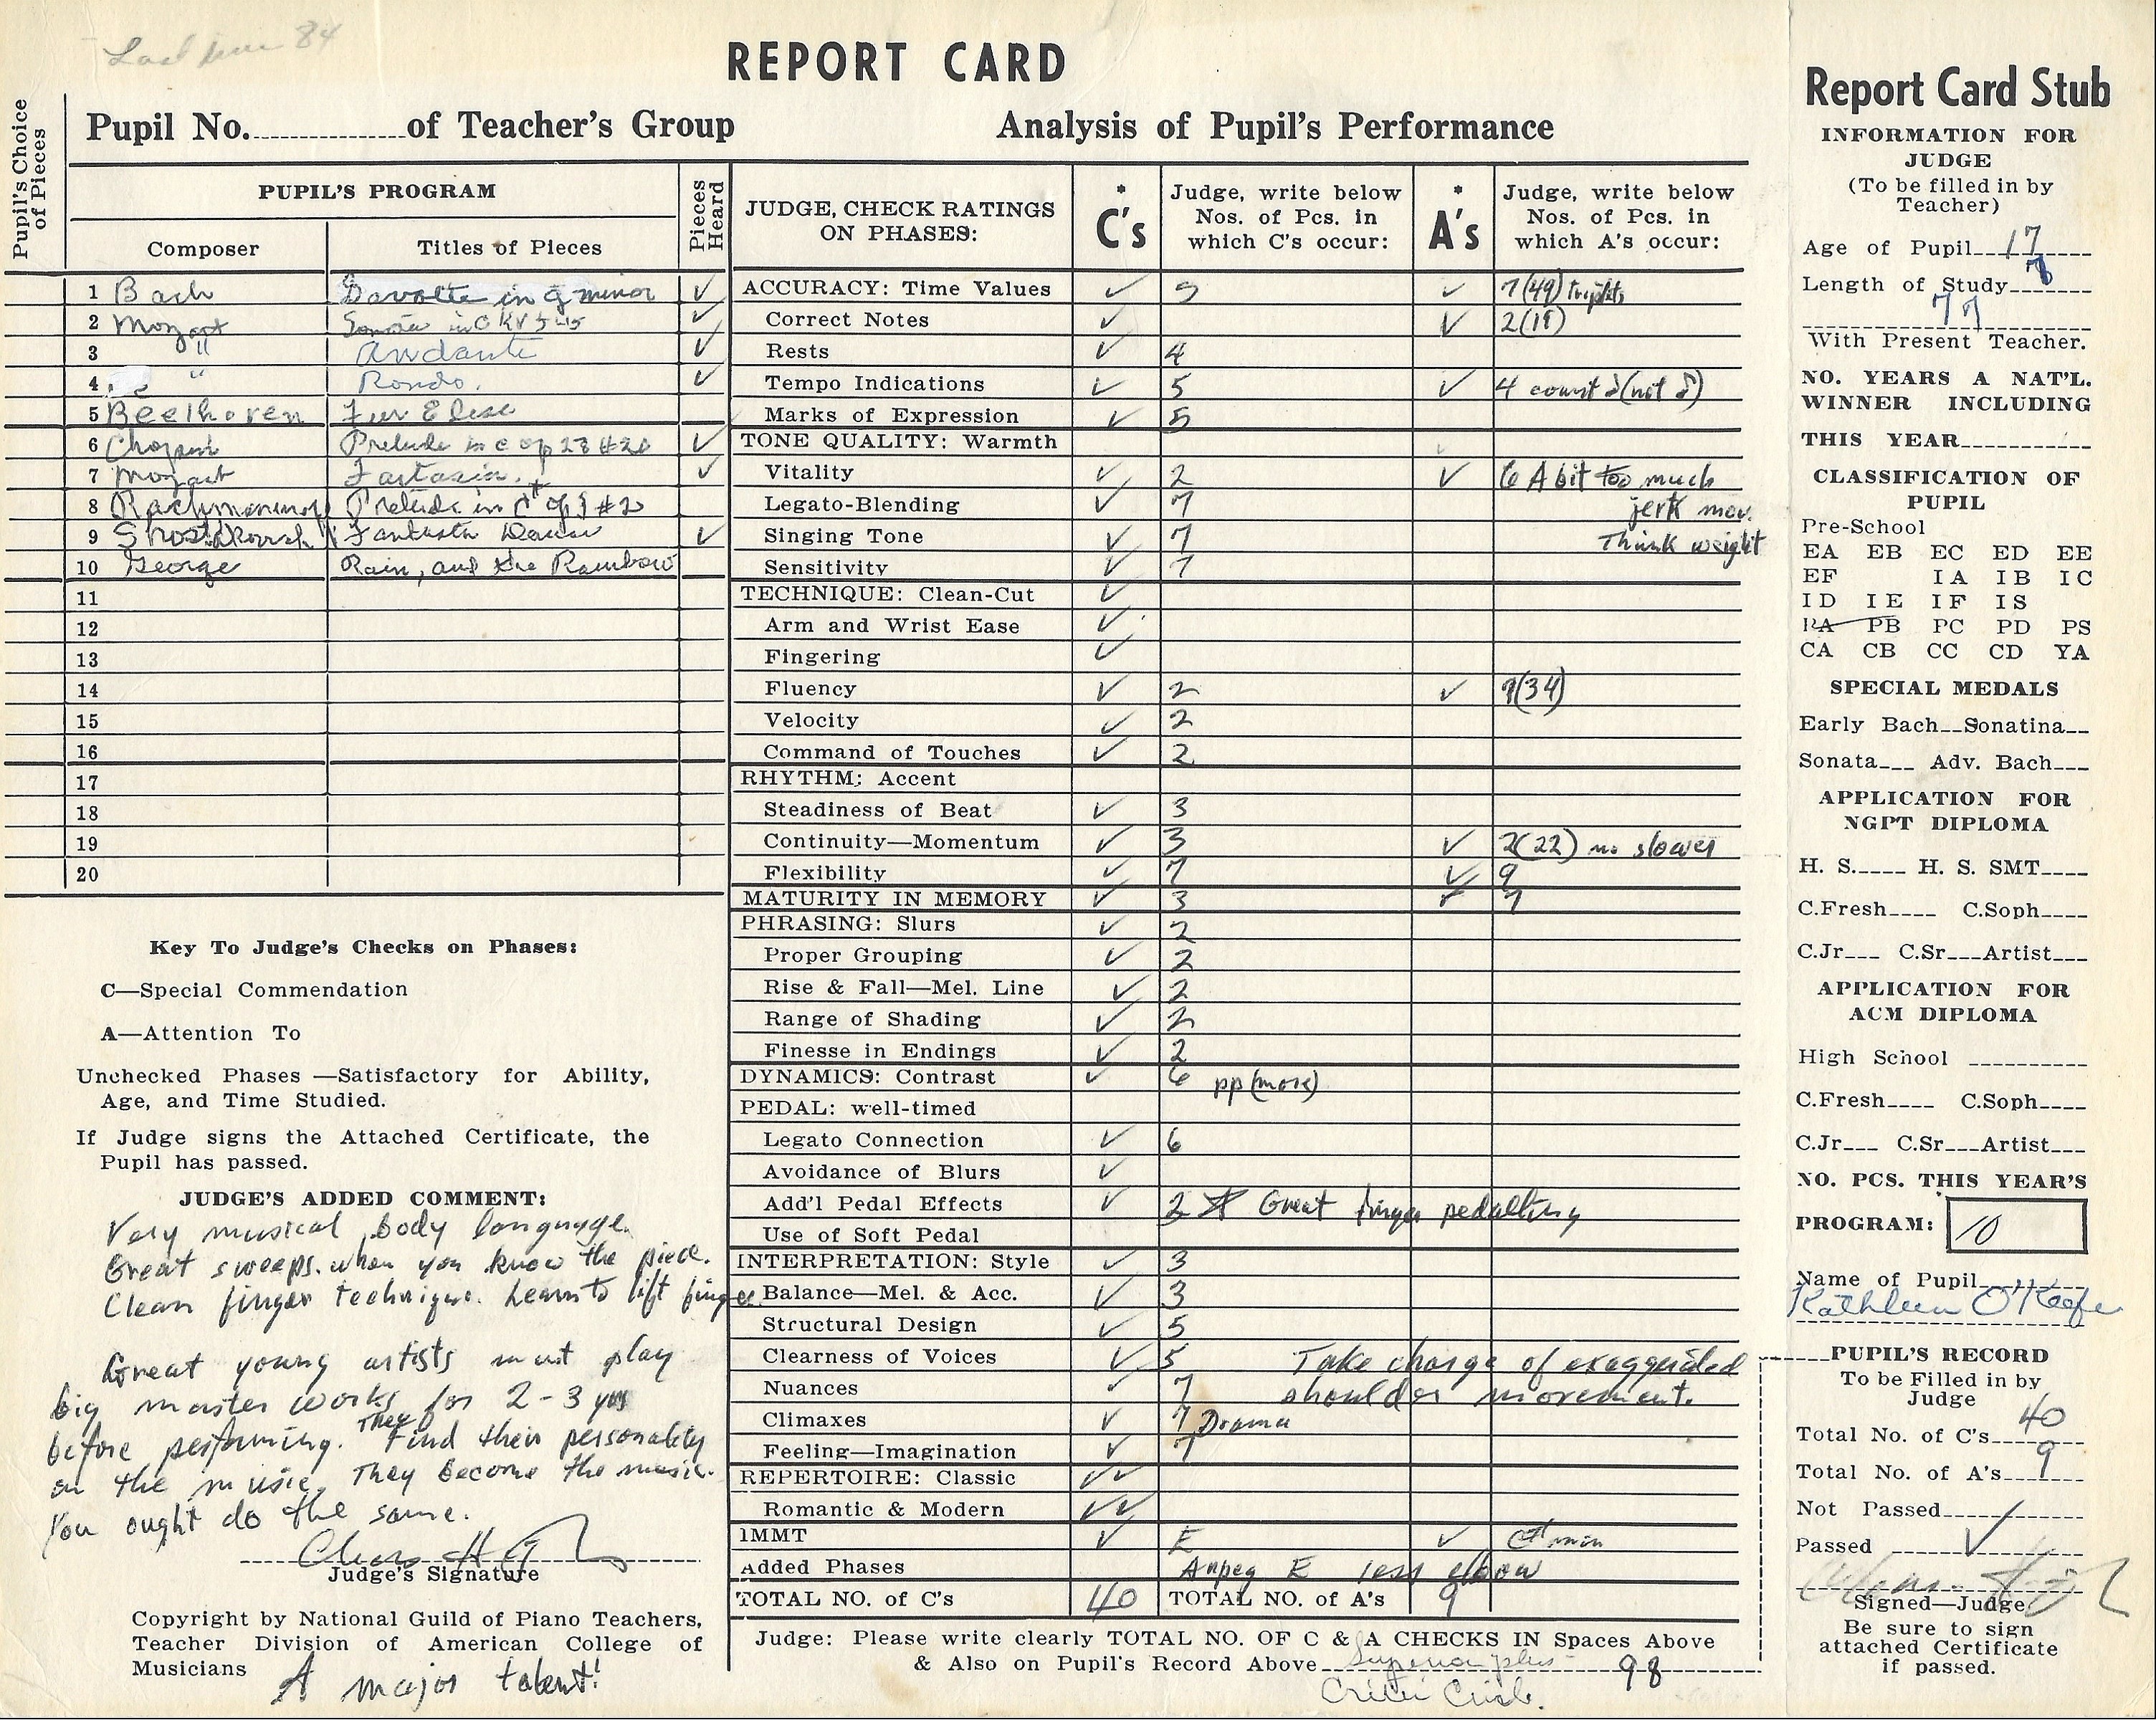 REPORT CARD
Pupil No. of Teacher's Group
Analysis of Pupil's Performance
Pupil's Choice of Pieces
PUPIL'S PROGRAM
Composer Titles of Pieces Pieces Heard
1 Bach Gavotte in g minor ✓
2 Mozart Sonata in C KV 545 ✓
3 " Andante ✓
4 " Rondo. ✓
5 Beethoven Fur Elise
6 Chopin Prelude in c op 28 #20 ✓
7 Mozart Fantasia. ✓
8 Prelude in C# op 3 #2
9 ✓
10 George Rain, and the Rainbow
11
12
13
14
15
16
17
18
19
20
Key To Judge's Checks on Phases:
C—Special Commendation
A—Attention To
Unchecked Phases —Satisfactory for Ability,
Age, and Time Studied.
If Judge signs the Attached Certificate, the
Pupil has passed.
JUDGE'S ADDED COMMENT:
Very musical body language.
Great sweeps when you know the piece.
Clean finger technique. Learn to lift finger
Great young artists must play
big master works for 2-3 yrs
before performing. They Find their personality
on the music. They become the music.
You ought do the same.
Judge's Signature
Copyright by National Guild of Piano Teachers,
Teacher Division of American College of
Musicians
A major talent!
JUDGE, CHECK RATINGS
ON PHASES:
* C's
Judge, write below
Nos. of Pcs. in
which C's occur:
* A's
Judge, write below
Nos. of Pcs. in
which A's occur:
ACCURACY: Time Values ✓ ✓ 7(49) triplets
Correct Notes ✓ ✓ 2(19)
Rests ✓ 4
Tempo Indications ✓ 5 ✓ 4 count (not )
Marks of Expression ✓ 5
TONE QUALITY: Warmth
Vitality ✓ 2 ✓ 6 A bit too much
Legato-Blending ✓ 7 jerk mov.
Singing Tone ✓ 7 Think weight
Sensitivity ✓ 7
TECHNIQUE: Clean-Cut ✓
Arm and Wrist Ease ✓
Fingering ✓
Fluency ✓ 2 ✓ 9(34)
Velocity ✓ 2
Command of Touches ✓ 2
RHYTHM: Accent
Steadiness of Beat ✓ 3
Continuity—Momentum ✓ 3 ✓ 2(22) no slower
Flexibility ✓ 7 ✓ 9
MATURITY IN MEMORY ✓ 3 ✓ 7
PHRASING: Slurs ✓ 2
Proper Grouping ✓ 2
Rise & Fall—Mel. Line ✓ 2
Range of Shading ✓ 2
Finesse in Endings ✓ 2
DYNAMICS: Contrast ✓ 6 pp (more)
PEDAL: well-timed
Legato Connection ✓ 6
Avoidance of Blurs ✓
Add'l Pedal Effects ✓ 2 Great finger pedalling
Use of Soft Pedal
INTERPRETATION: Style ✓ 3
Balance—Mel. & Acc. ✓ 3
Structural Design ✓ 5
Clearness of Voices ✓ 5 Take charge of exaggerated
Nuances ✓ 7 shoulder movement.
Climaxes ✓ 7 Drama
Feeling—Imagination ✓ 7
REPERTOIRE: Classic ✓✓
Romantic & Modern ✓✓
IMMT ✓ E ✓ C# min
Added Phases Arpeg E less elbow
TOTAL NO. of C's 40 TOTAL NO. of A's 9
Judge: Please write clearly TOTAL NO. OF C & A CHECKS IN Spaces Above
& Also on Pupil's Record Above Superior plus 98
Critics Circle.
Report Card Stub
INFORMATION FOR
JUDGE
(To be filled in by
Teacher)
Age of Pupil 17
Length of Study
With Present Teacher.
NO. YEARS A NAT'L.
WINNER INCLUDING
THIS YEAR
CLASSIFICATION OF
PUPIL
Pre-School
EA EB EC ED EE
EF IA IB IC
ID IE IF IS
PA PB PC PD PS
CA CB CC CD YA
SPECIAL MEDALS
Early Bach Sonatina
Sonata Adv. Bach
APPLICATION FOR
NGPT DIPLOMA
H. S. H. S. SMT
C.Fresh C.Soph
C.Jr C.Sr Artist
APPLICATION FOR
ACM DIPLOMA
High School
C.Fresh C.Soph
C.Jr C.Sr Artist
NO. PCS. THIS YEAR'S
PROGRAM: 10
Name of Pupil
Kathleen O'Keefe
PUPIL'S RECORD
To be Filled in by
Judge
Total No. of C's 40
Total No. of A's 9
Not Passed
Passed ✓
Signed—Judge
Be sure to sign
attached Certificate
if passed.